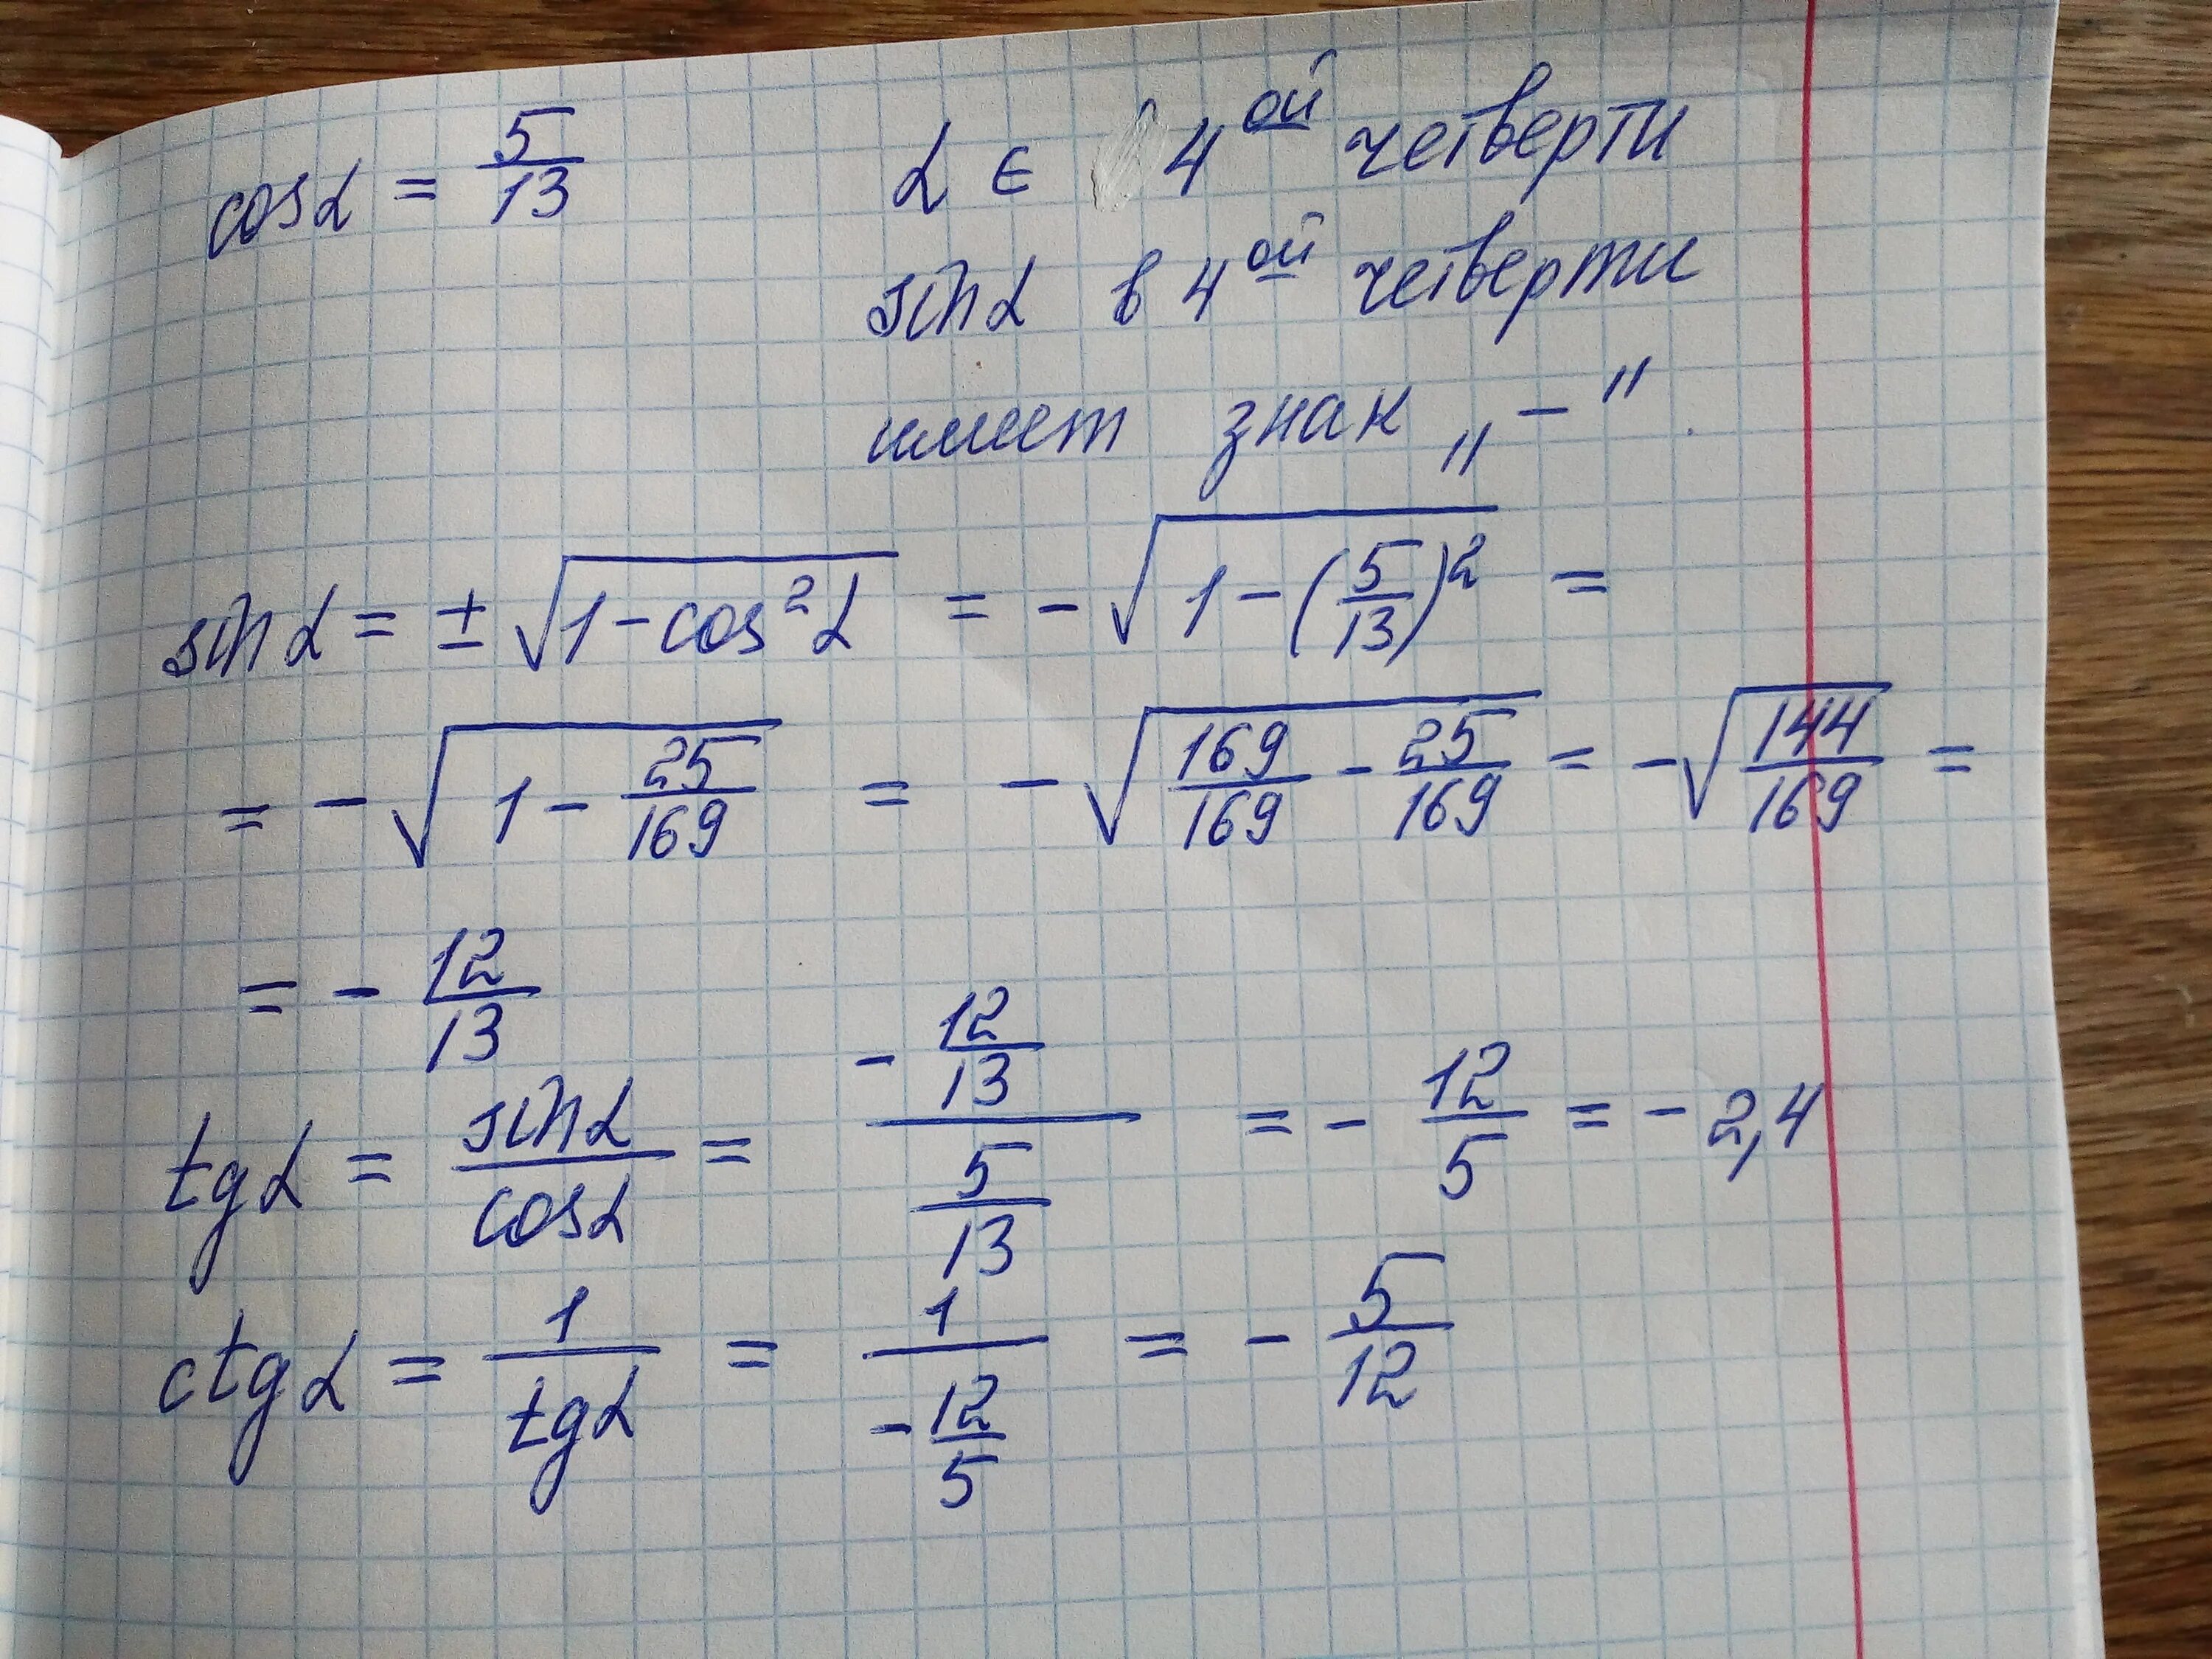 cosα = 5/13 α ∈ 4ой четверти
sinα в 4ой четверти
имеет знак „ – ".
sinα = ± √(1 - cos²α) = - √(1 - (5/13)²) =
= - √(1 - 25/169) = - √(169/169 - 25/169) = - √(144/169) =
= - 12/13
tgα = sinα/cosα = (- 12/13)/(5/13) = - 12/5 = - 2,4
ctgα = 1/tgα = 1/(- 12/5) = - 5/12